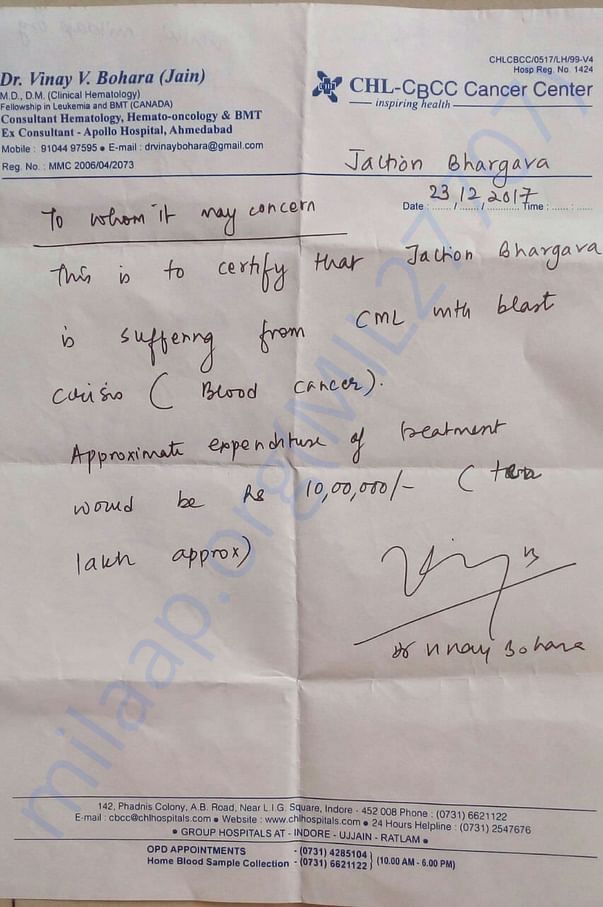 CHLCBCC/0517/LH/99-V4
Hosp Reg. No. 1424
Dr. Vinay V. Bohara (Jain)
M.D., D.M. (Clinical Hematology)
Fellowship in Leukemia and BMT (CANADA)
Consultant Hematology, Hemato-oncology & BMT
Ex Consultant - Apollo Hospital, Ahmedabad
Mobile : 91044 97595 • E-mail : drvinaybohara@gmail.com
Reg. No. : MMC 2006/04/2073
CHL-CBCC Cancer Center
inspiring health
Bhargava
Date : 23/12/2017 Time : ...... : ......
To whom it may concern
This is to certify that Bhargava
is suffering from CML with blast
crisis ( Blood cancer).
Approximate expenditure of treatment
would be Rs 10,00,000/- (
lakh approx)
Dr Vinay Bohara
142, Phadnis Colony, A.B. Road, Near L.I.G. Square, Indore - 452 008 Phone : (0731) 6621122
E-mail : cbcc@chlhospitals.com • Website : www.chlhospitals.com • 24 Hours Helpline : (0731) 2547676
• GROUP HOSPITALS AT - INDORE - UJJAIN - RATLAM •
OPD APPOINTMENTS - (0731) 4285104
Home Blood Sample Collection - (0731) 6621122 } (10.00 AM - 6.00 PM)
milaap.org(MIL27707)